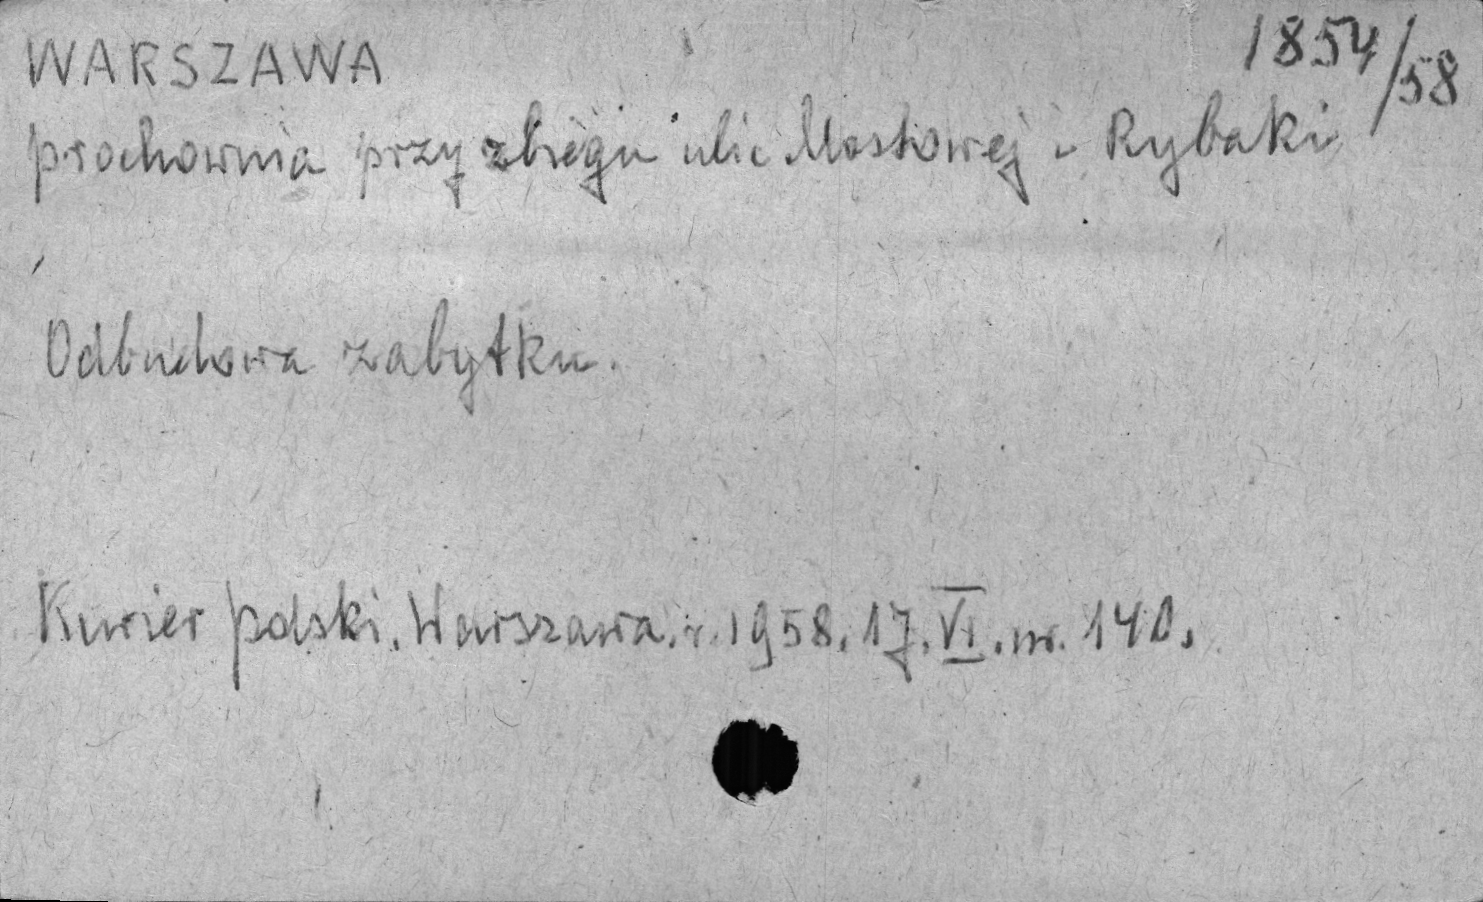 WARSZAWA 1854/58
prochownia przy zbiegu ulic Mostowej i Rybaki
Odbudowa zabytku.
Kurier polski. Warszawa. r. 1958. 17. VI. nr. 140.